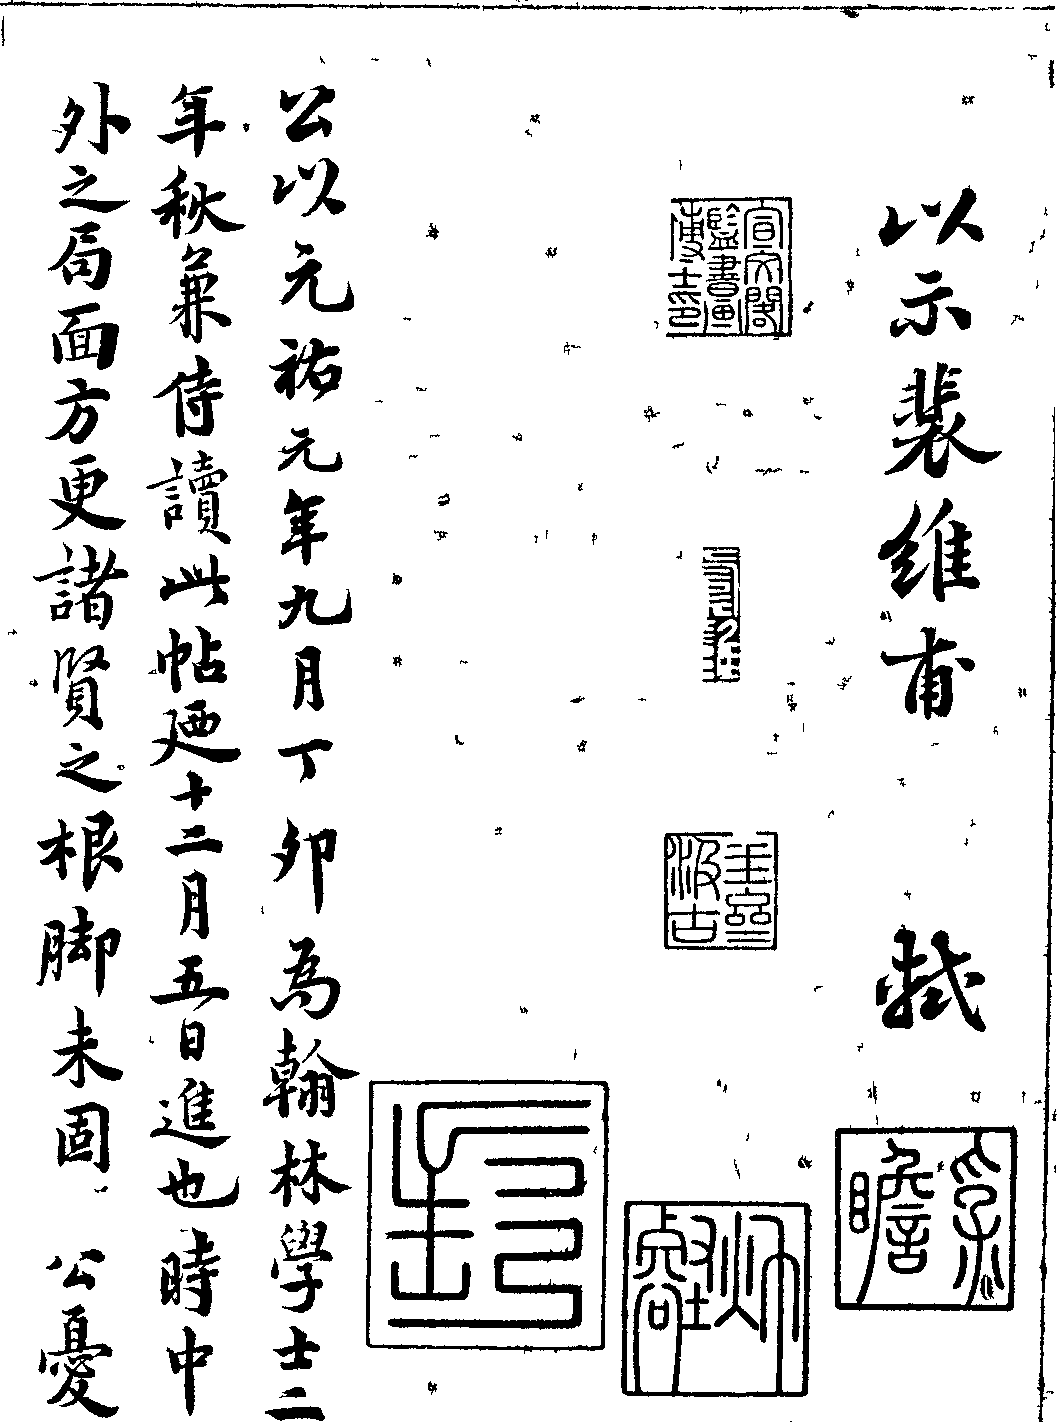 以示裴維甫 軾
宣文閣
鑑書畫
博士印
公以元祐元年九月丁卯為翰林學士二
年秋兼侍讀此帖廼十二月五日進也時中
外之局面方更諸賢之根脚未固 公憂